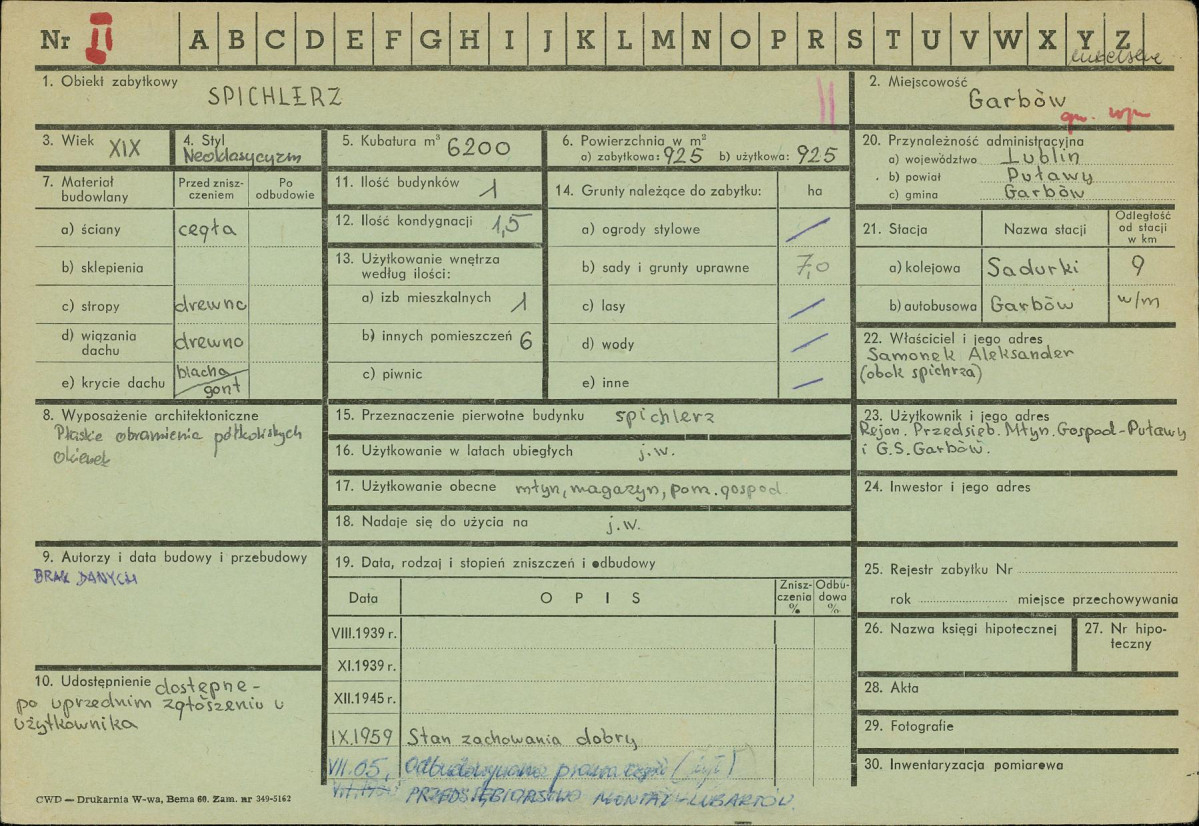 Nr II A B C D E F G H I J K L M N O P R S T U V W X Y Z
lubelskie
1. Obiekt zabytkowy
SPICHLERZ
2. Miejscowość
Garbów
3. Wiek XIX
4. Styl
Neoklasycyzm
5. Kubatura m³ 6200
6. Powierzchnia w m²
a) zabytkowa: 925 b) użytkowa: 925
20. Przynależność administracyjna
a) województwo Lublin
b) powiat Puławy
c) gmina Garbów
7. Materiał budowlany
Przed zniszczeniem
Po odbudowie
a) ściany cegła
b) sklepienia
c) stropy drewno
d) wiązania dachu drewno
e) krycie dachu blacha
gont
11. Ilość budynków 1
12. Ilość kondygnacji 1,5
13. Użytkowanie wnętrza
według ilości:
a) izb mieszkalnych 1
b) innych pomieszczeń 6
c) piwnic
14. Grunty należące do zabytku: ha
a) ogrody stylowe /
b) sady i grunty uprawne 7,0
c) lasy /
d) wody /
e) inne /
21. Stacja Nazwa stacji Odległość od stacji w km
a) kolejowa Sadurki 9
b) autobusowa Garbów w/m
22. Właściciel i jego adres
Samonek Aleksander
(obok spichrza)
8. Wyposażenie architektoniczne
Płaskie obramienia półkolistych
okienek
15. Przeznaczenie pierwotne budynku spichlerz
16. Użytkowanie w latach ubiegłych j.w.
17. Użytkowanie obecne młyn, magazyn, pom. gospod.
18. Nadaje się do użycia na j.w.
23. Użytkownik i jego adres
Rejon. Przedsięb. Młyn. Gospod-Puławy
i G.S. Garbów.
24. Inwestor i jego adres
9. Autorzy i data budowy i przebudowy
BRAK DANYCH
19. Data, rodzaj i stopień zniszczeń i odbudowy
Data OPIS Zniszczenia % Odbudowa %
VIII.1939 r.
XI.1939 r.
XII.1945 r.
IX.1959 Stan zachowania dobry
VII.05, Odbudowano prawa część
PRZEDSIĘBIORSTWO MONTAŻ-LUBARTÓW.
25. Rejestr zabytku Nr
rok miejsce przechowywania
26. Nazwa księgi hipotecznej
27. Nr hipoteczny
28. Akta
29. Fotografie
30. Inwentaryzacja pomiarowa
10. Udostępnienie dostępne-
po uprzednim zgłoszeniu u
użytkownika
CWD — Drukarnia W-wa, Bema 60. Zam. nr 349-5162